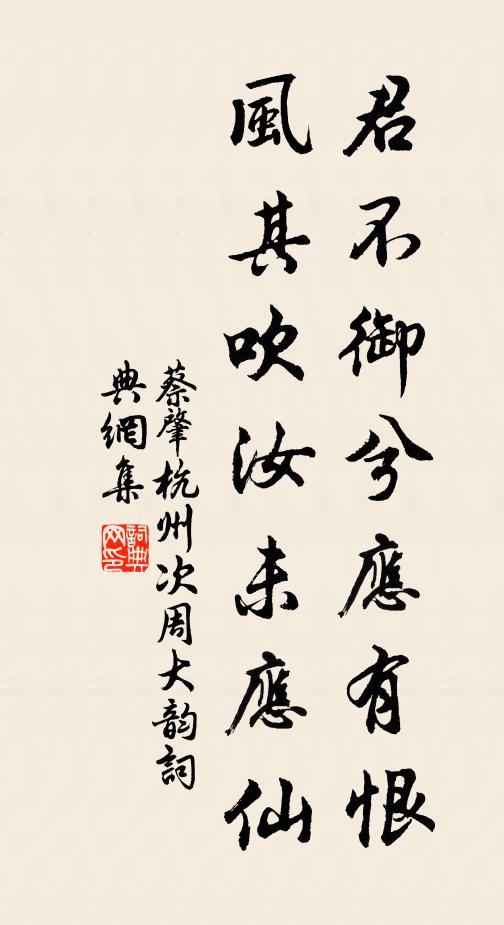 君不御兮應有恨
風其吹汝未應仙
蔡肇杭州次周大韵詞
典網集
詞典網印